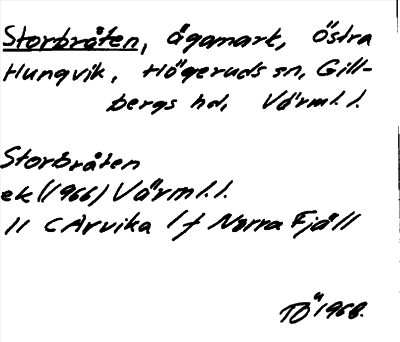 Storbråten, ägomark, östra
Hungvik, Högeruds sn, Gill-
bergs hd, Värml. l.
Storbråten
ek (1966) Värml. l.
11 C Arvika 1 f Norra Fjäll
TÖ 1968.